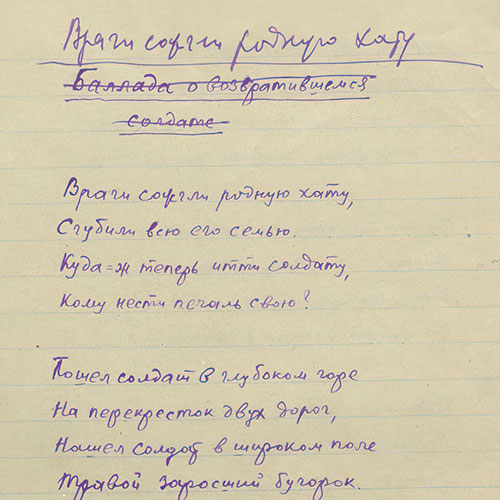 Враги сожгли родную хату
Баллада о возвратившемся
солдате
Враги сожгли родную хату,
Сгубили всю его семью.
Куда=ж теперь итти солдату,
Кому нести печаль свою?
Пошел солдат в глубоком горе
На перекресток двух дорог,
Нашел солдат в широком поле
Травой заросший бугорок.